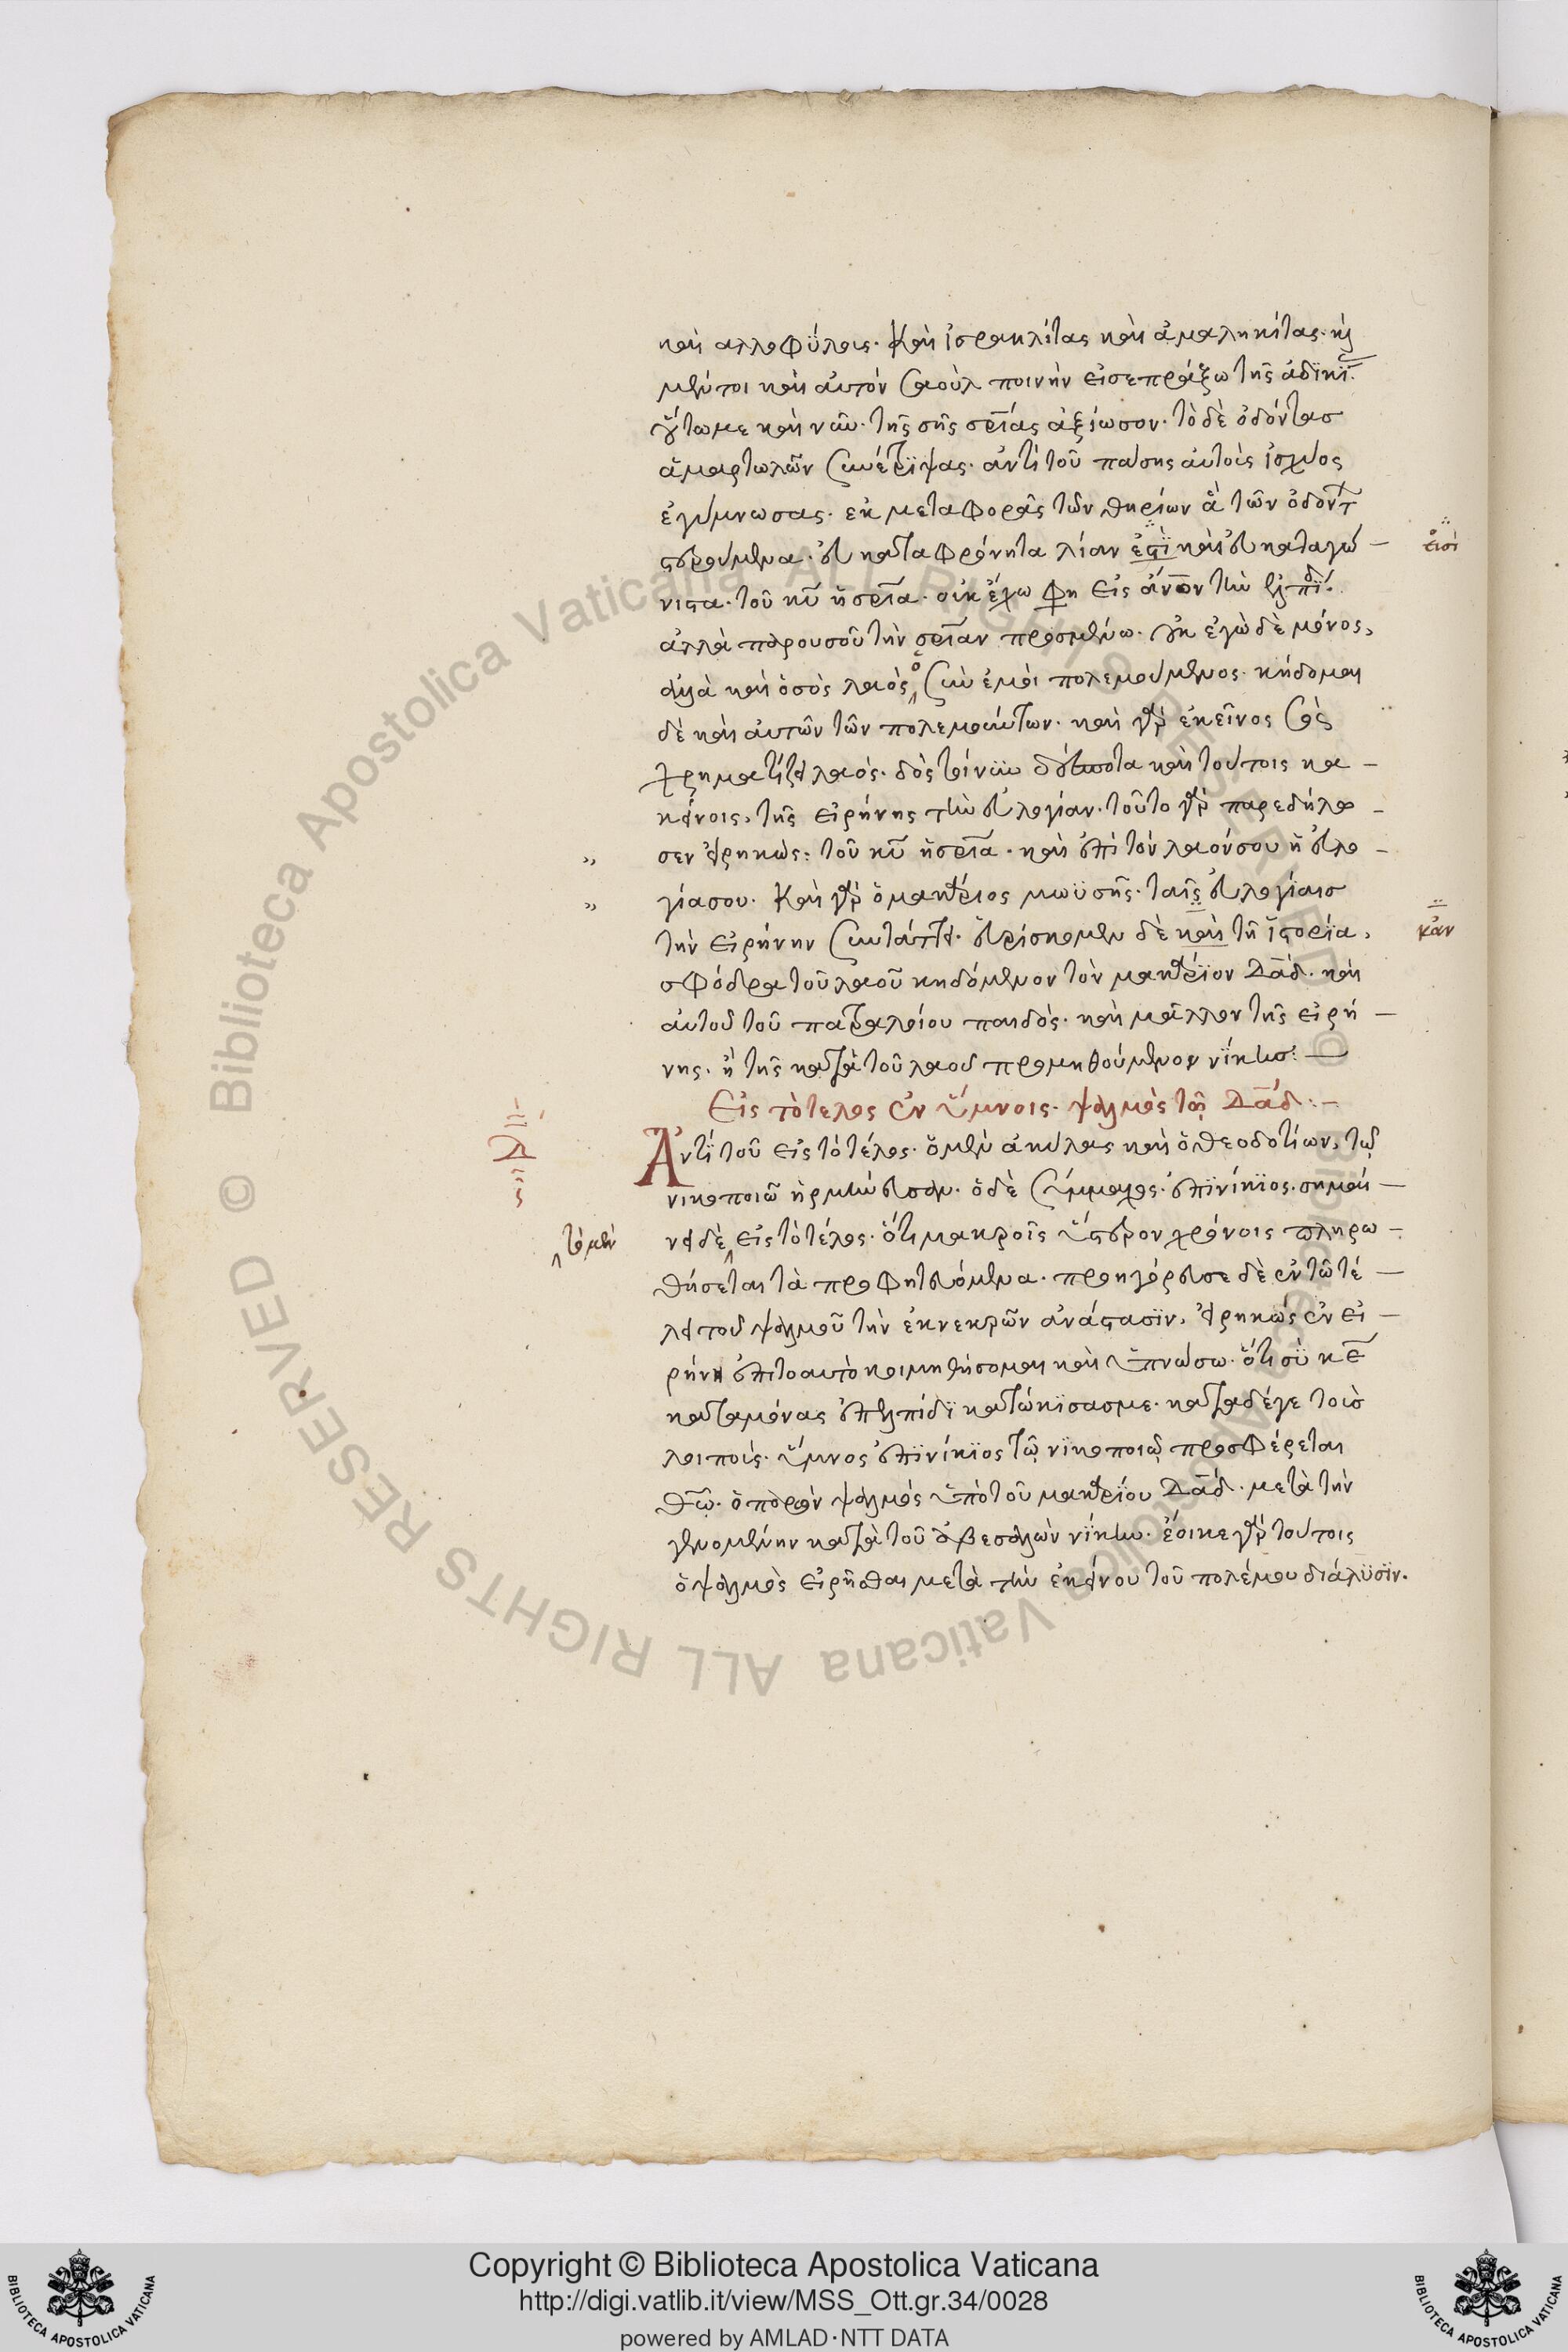 καὶ αλλοφύλοις. Καὶ ἰσραηλίτας καὶ ἀμαληκίτας. καὶ
μέντοι καὶ αὐτὸν σαοὺλ ποινὴν εἰσεπράξω τῆς ἀδικί
οὕτω με καὶ νῦν. τῆς σῆς σρίας ἀξίωσον. τὸ δὲ ὀδόντασ
ἁμαρτωλῶν συνέτριψας. ἀντὶ τοῦ πάσης αὐτοὺς ἰσχύος
ἐγύμνωσας. ἐκ μεταφορᾶς τῶν θηρίων ἃ τῶν ὀδόντ
στερούμενα. εὐκαταφρόνητα λίαν ἐστὶ καὶ εὐκαταγώ –
νιστα. τοῦ κυ ἡ σρία. οὐκ ἔχω φη εἰς ἄνον τὴν ἐλπί.
ἀλλὰ παρου σοῦ τὴν σρίαν προσμένω. οὐκ ἐγὼ δὲ μόνος,
ἀλλὰ καὶ ὁ σὸς λαὸς ὁ σὺν ἐμοὶ πολεμούμενος. κήδομαι
δὲ καὶ αὐτῶν τῶν πολεμούντων. καὶ γὰρ ἐκεῖνος σὸς
χρηματίζει λαός. δὸς τοίνυν δέσποτα καὶ τούτοις κα –
κείνοις, τῆς εἰρήνης τὴν εὐλογίαν. τοῦτο γὰρ παρεδήλω –
» σεν εἰρηκώς: τοῦ κυ ἡ σρία. καὶ ἐπὶ τὸν λαόν σου ἡ εὐλο –
» γία σου. Καὶ γὰρ ὁ μακάριος μωϋσῆς. ταῖς εὐλογίαισ
τὴν εἰρήνην συντάττει. εὑρίσκομεν δὲ καὶ τῆ ἱστορία,
σφόδρα τοῦ λαοῦ κηδόμενον τὸν μακάριον Δαδ. καὶ
αὐτοῦ τοῦ πατραλοίου παιδός. καὶ μᾶλλον τῆς εἰρή –
νης. ἢ τῆς κατὰ τοῦ λαοῦ προμηθούμενον νίκησ: —
εἰσὶ
κἂν
Εἰς τὸ τελος ἐν ὕμνοις. ψαλμὸς τῷ Δαδ: –
Ἀντὶ τοῦ εἰς τὸ τέλος. ὁ μὲν ἀκύλας καὶ ὁ θεοδοτίων, τῷ
νικοποιῶ ἡρμήνευσαν. ὁ δὲ σύμμαχος. ἐπινίκιος. σημαί –
νει δὲ εἰς τὸ τέλος. ὅτι μακροῖς ὕστερον χρόνοις πληρω –
τὸ μὲν
θήσεται τὰ προφητευόμενα. προηγόρευσε δὲ ἐν τῶ τέ –
λει τοῦ ψαλμοῦ τὴν ἐκ νεκρῶν ἀνάστασιν, εἰρηκὼς ἐν εἰ –
ρήνη ἐπιτοαυτὸ κοιμηθήσομαι καὶ ὑπνώσω. ὅτι σὺ κε
καταμόνας ἐπ ἐλπίδι κατώκισασ με. κατὰ δέ γε τοὺσ
λοιποὺς. ὕμνος ἐπινίκιος τῷ νικοποιῷ προσφέρεται
θῷ. ὁ παρὼν ψαλμὸς ὑπὸ τοῦ μακαρίου Δαδ. μετὰ τὴν
γενομένην κατὰ τοῦ ἀβεσαλὼν νίκην. ἔοικε γὰρ τούτοις
ὁ ψαλμὸς εἰρῆσθαι μετὰ τὴν ἐκείνου τοῦ πολέμου διάλυσιν.
© Biblioteca Apostolica Vaticana ALL RIGHTS RESERVED © Biblioteca Apostolica Vaticana ALL RIGHTS RESERVED
Copyright © Biblioteca Apostolica Vaticana
http://digi.vatlib.it/view/MSS_Ott.gr.34/0028
powered by AMLAD·NTT DATA
BIBLIOTECA APOSTOLICA VATICANA
BIBLIOTECA APOSTOLICA VATICANA